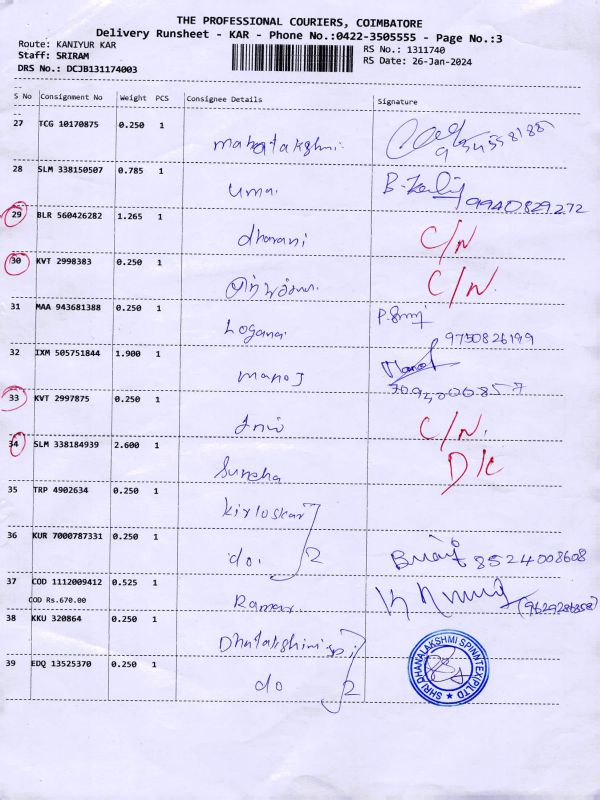 THE PROFESSIONAL COURIERS, COIMBATORE
Delivery Runsheet - KAR - Phone No.:0422-3505555 - Page No.:3
Route: KANIYUR KAR
RS No.: 1311740
Staff: SRIRAM
RS Date: 26-Jan-2024
DRS No.: DCJB131174003
S No Consignment No Weight PCS Consignee Details Signature
27 TCG 10170875 0.250 1
mahalakshmi
28 SLM 338150507 0.785 1
uma
9940829272
29 BLR 560426282 1.265 1
dharani C/N
30 KVT 2998383 0.250 1
C/N
31 MAA 943681388 0.250 1
Logana
9750826199
32 IXM 505751844 1.900 1
manoj Manoj
33 KVT 2997875 0.250 1
C/N.
34 SLM 338184939 2.600 1
D/C
35 TRP 4902634 0.250 1
kirloskar
36 KUR 7000787331 0.250 1
do. 2
8524008608
37 COD 1112009412 0.525 1
COD Rs.670.00
Raman
38 KKU 320864 0.250 1
39 EDQ 13525370 0.250 1
do 2
SHRI DHANALAKSHMI SPINNTEX(P)LTD